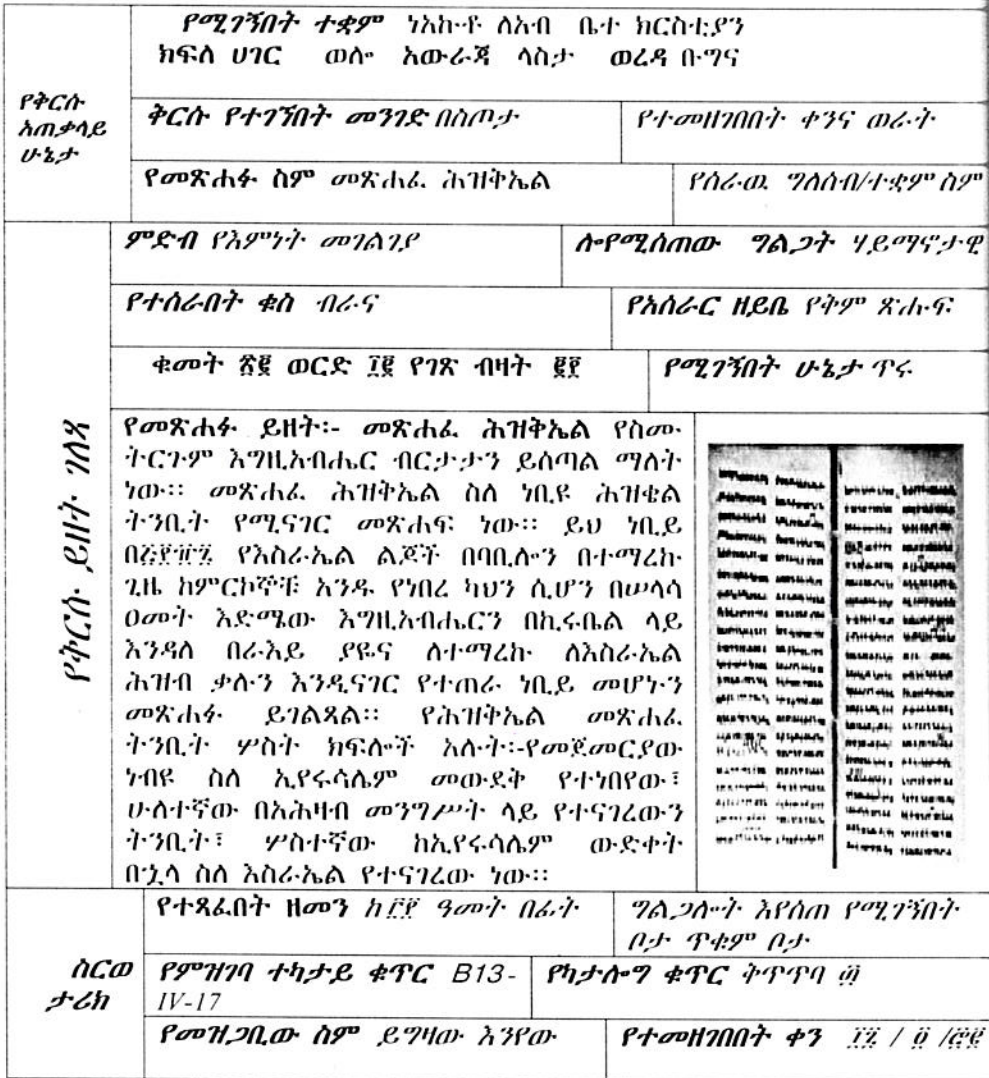 የሚገኝበት ተቋም ነአኩቶ ለአብ ቤተ ክርስቲያን
ክፍለ ሀገር ወሎ አውራጃ ላስታ ወረዳ ቡግና
የቅርሱ አጠቃላይ ሁኔታ
ቅርሱ የተገኘበት መንገድ በስጦታ
የተመዘገበበት ቀንና ወራት
የመጽሐፉ ስም መጽሐፈ ሕዝቅኤል
የሰራዉ ግለሰብ/ተቋም ስም
የቅርሱ ይዘት ገለጻ
ምድብ የእምነት መገልገያ
ሎየሚሰጠው ግልጋት ሃይማኖታዊ
የተሰራበት ቁስ ብራና
የአሰራር ዘይቤ የቅም ጽሑፍ
ቁመት ወርድ የገጽ ብዛት
የሚገኝበት ሁኔታ ጥሩ
የመጽሐፉ ይዘት፡- መጽሐፈ ሕዝቅኤል የስሙ
ትርጉም እግዚአብሔር ብርታታን ይሰጣል ማለት
ነው፡፡ መጽሐፈ ሕዝቅኤል ስለ ነቢዩ ሕዝቄል
ትንቢት የሚናገር መጽሐፍ ነው፡፡ ይህ ነቢይ
የእስራኤል ልጆች በባቢሎን በተማረኩ
ጊዜ ከምርኮኞቹ አንዱ የነበረ ካህን ሲሆን በሠላሳ
ዐመት እድሜው እግዚአብሔርን በኪሩቤል ላይ
እንዳለ በራእይ ያዩና ለተማረኩ ለእስራኤል
ሕዝብ ቃሉን እንዲናገር የተጠራ ነቢይ መሆኑን
መጽሐፉ ይገልጻል፡፡ የሕዝቅኤል መጽሐፈ
ትንቢት ሦስት ክፍሎች አሉት፡-የመጀመርያው
ነብዩ ስለ ኢየሩሳሌም መውደቅ የተነበየው፣
ሁለተኛው በአሕዛብ መንግሥት ላይ የተናገረውን
ትንቢት፣ ሦስተኛው ከኢየሩሳሌም ውድቀት
በኂላ ስለ እስራኤል የተናገረው ነው፡፡
ስርወ ታሪክ
የተጻፈበት ዘመን ከ ዓመት በፊት
ግልጋሎት እየሰጠ የሚገኝበት
ቦታ ጥቁም ቦታ
የምዝገባ ተካታይ ቁጥር B13-
IV-17
የካታሎግ ቁጥር ቅጥጥባ
የመዝጋቢው ስም ይግዛው እንየው
የተመዘገበበት ቀን